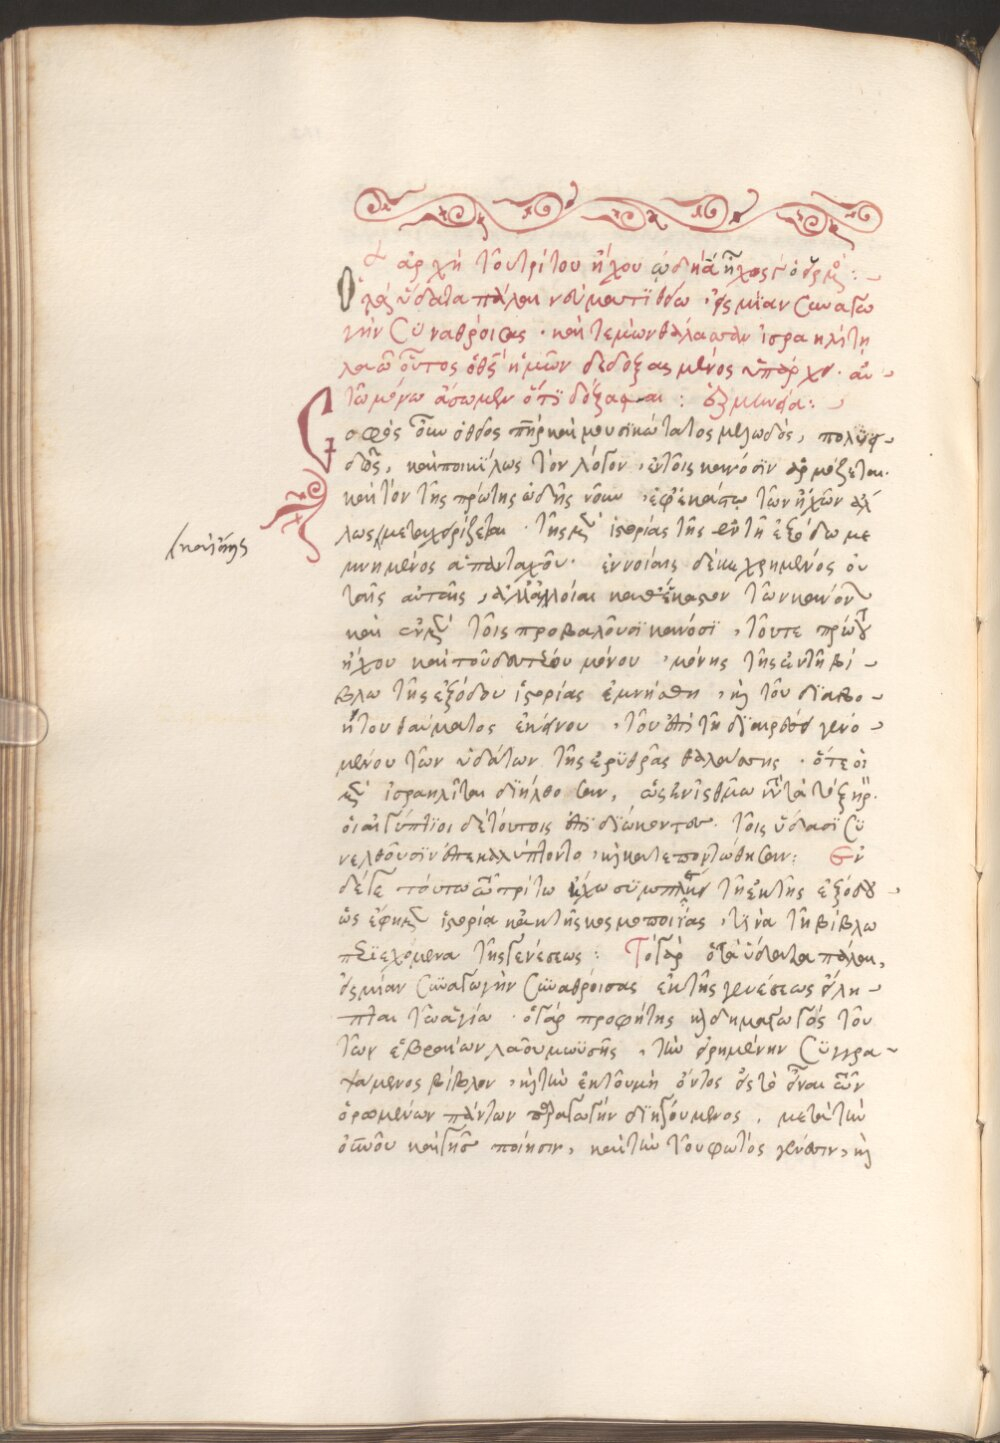 ἀρχὴ τοῦ τρίτου ἤχου ᾠδὴ α ἦχος γ ὁ εἱρμὸς:
Ὁ τὰ ὕδατα πάλαι νεύματι θείω, εἰς μίαν συναγω
γὴν συναθροίσας· καὶ τεμὼν θάλασσαν ἰσραηλίτη
λαῶ οὗτος ὁ θεὸς ἡμῶν δεδοξασμένος ὑπάρχει· αὐ
τῶ μόνω ἄσωμεν ὅτι δόξασται: ἑρμηνεία:
Σοφὸς ὢν ὁ θεῖος πατὴρ καὶ μουσικώτατος μελωδὸς, πολυει
δῶς, καὶ ποικίλως τὸν λόγον, ἐν τοῖς κανόσιν ἁρμόζεται·
καὶ τὸν τῆς πρώτης ὠδῆς νοῦν, ἐφ' ἑκάστω τῶν ἤχων ἀλ
λως μεταχειρίζεται· τῆς μὲν ἱστορίας τῆς ἐν τῆ ἐξόδω με
μνημένος ἁπανταχοῦ· ἐννοίαις δὲ κεχρημένος οὐ
ταῖς αὐταῖς, ἀλλ' ἀλλοίαι καθ' ἕκαστον τῶν κανόνων
καὶ ἐν μὲν τοῖς προλαβοῦσι κανόσι, τοῦ τε πρώτου
ἤχου καὶ τοῦ δευτέρου μόνου, μόνης τῆς ἐν τῆ βί
βλω τῆς ἐξόδου ἱστορίας ἐμνήσθη, καὶ τοῦ διαβο
ήτου θαύματος ἐκείνου, τοῦ ἐπὶ τῆ διαιρέσει γενο
μένου τῶν ὑδάτων τῆς ἐρυθρᾶς θαλάσσης· ὅτε οἱ
μὲν ἰσραηλῖται διῆλθοσαν,
οἱ αἰγύπτιοι δὲ τούτοις ἐπιδιώκοντες τοῖς ὕδασι συ
νελθοῦσιν ἐπεκαλύπτοντο, καὶ κατεποντώθησαν: Ἐν
δέ γε τούτω τῶ τρίτω ἤχω συμπλέκει τῆ ἐκ τῆς ἐξόδου
ὡς ἔφημεν ἱστορία καὶ ἐκ τῆς κοσμοποιΐας, τινὰ τῆ βίβλω
περιεχόμενα τῆς γενέσεως: Τὸ γὰρ ὁ τὰ ὕδατα πάλαι,
εἰς μίαν συναγωγὴν συναθροίσας ἐκ τῆς γενέσεως εἴλη
πται τῶ ἁγίω· ὁ γὰρ προφήτης καὶ δημαγωγὸς τοῦ
τῶν ἑβραίων λαοῦ μωϋσῆς, τὴν εἰρημένην συγγρα
ψάμενος βίβλον, καὶ τὴν ἐκ τοῦ μὴ ὄντος εἰς τὸ εἶναι τῶν
ὁρωμένων πάντων παραγωγὴν διηγούμενος, μετὰ τὴν
οὐρανοῦ καὶ γῆς ποίησιν, καὶ τὴν τοῦ φωτὸς γένεσιν, καὶ
καὶ τῆς